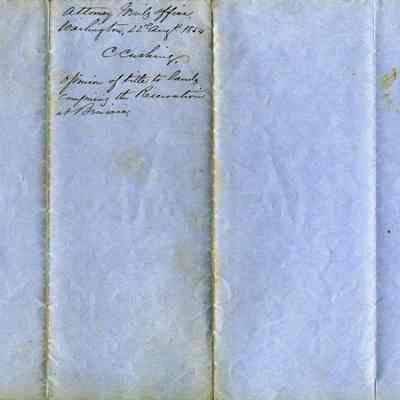 Attorney Genl's Office,
Washington, 22d Augt. 1854
C Cushing,
Opinion of title to lands
Comprising the Reservation
at Benicia,